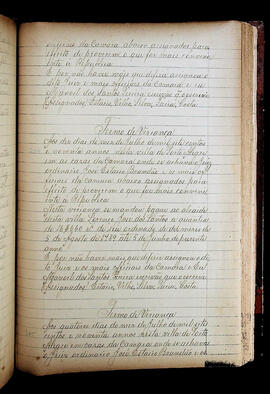 officiaes da Camara abaixo assignados para
effeito de proverem o que for mais conveni
ente á Republica
E por não haver mais que diferir assignou o
dito Juiz e mais officiaes da Camara e eu
Manoel dos Santos escrivão o escrevi
Assignados, Estacio, Vilha, Silva, Faria, Costa.
Termo de Vereança
Aos dez dias do mez de Julho de mil sete centos
e noventa annos nesta villa de Porto Alegre
em as casas da Camara, onde se achavão o Juiz
ordinario José Estacio Brandão e os mais of
ficiaes da camara abaixo assignados para
effeito de proverem o que for mais conveni
ente á Republica
Nesta vereança se mandou pagar ao alcaide
desta villa dos Santos a quantia
de 16$660 rs de seu ordenado de
5 de Agosto de 1789 até 5 de Junho do presente
anno
E por não haver mais que diferir assignou o di
to Juiz e os mais officiaes da Camara e Eu
Manoel dos Santos escrivão que o escrevi
Assignados: Estacio, Vilha, Silva, Faria, Costa.
Termo de Vereança
Aos quatorze dias do mez de Julho de mil sete
centos e noventa annos nesta villa de Porto
Alegre em casas da Camara onde se achavão
o Juiz ordinario José Estacio Brandão e os